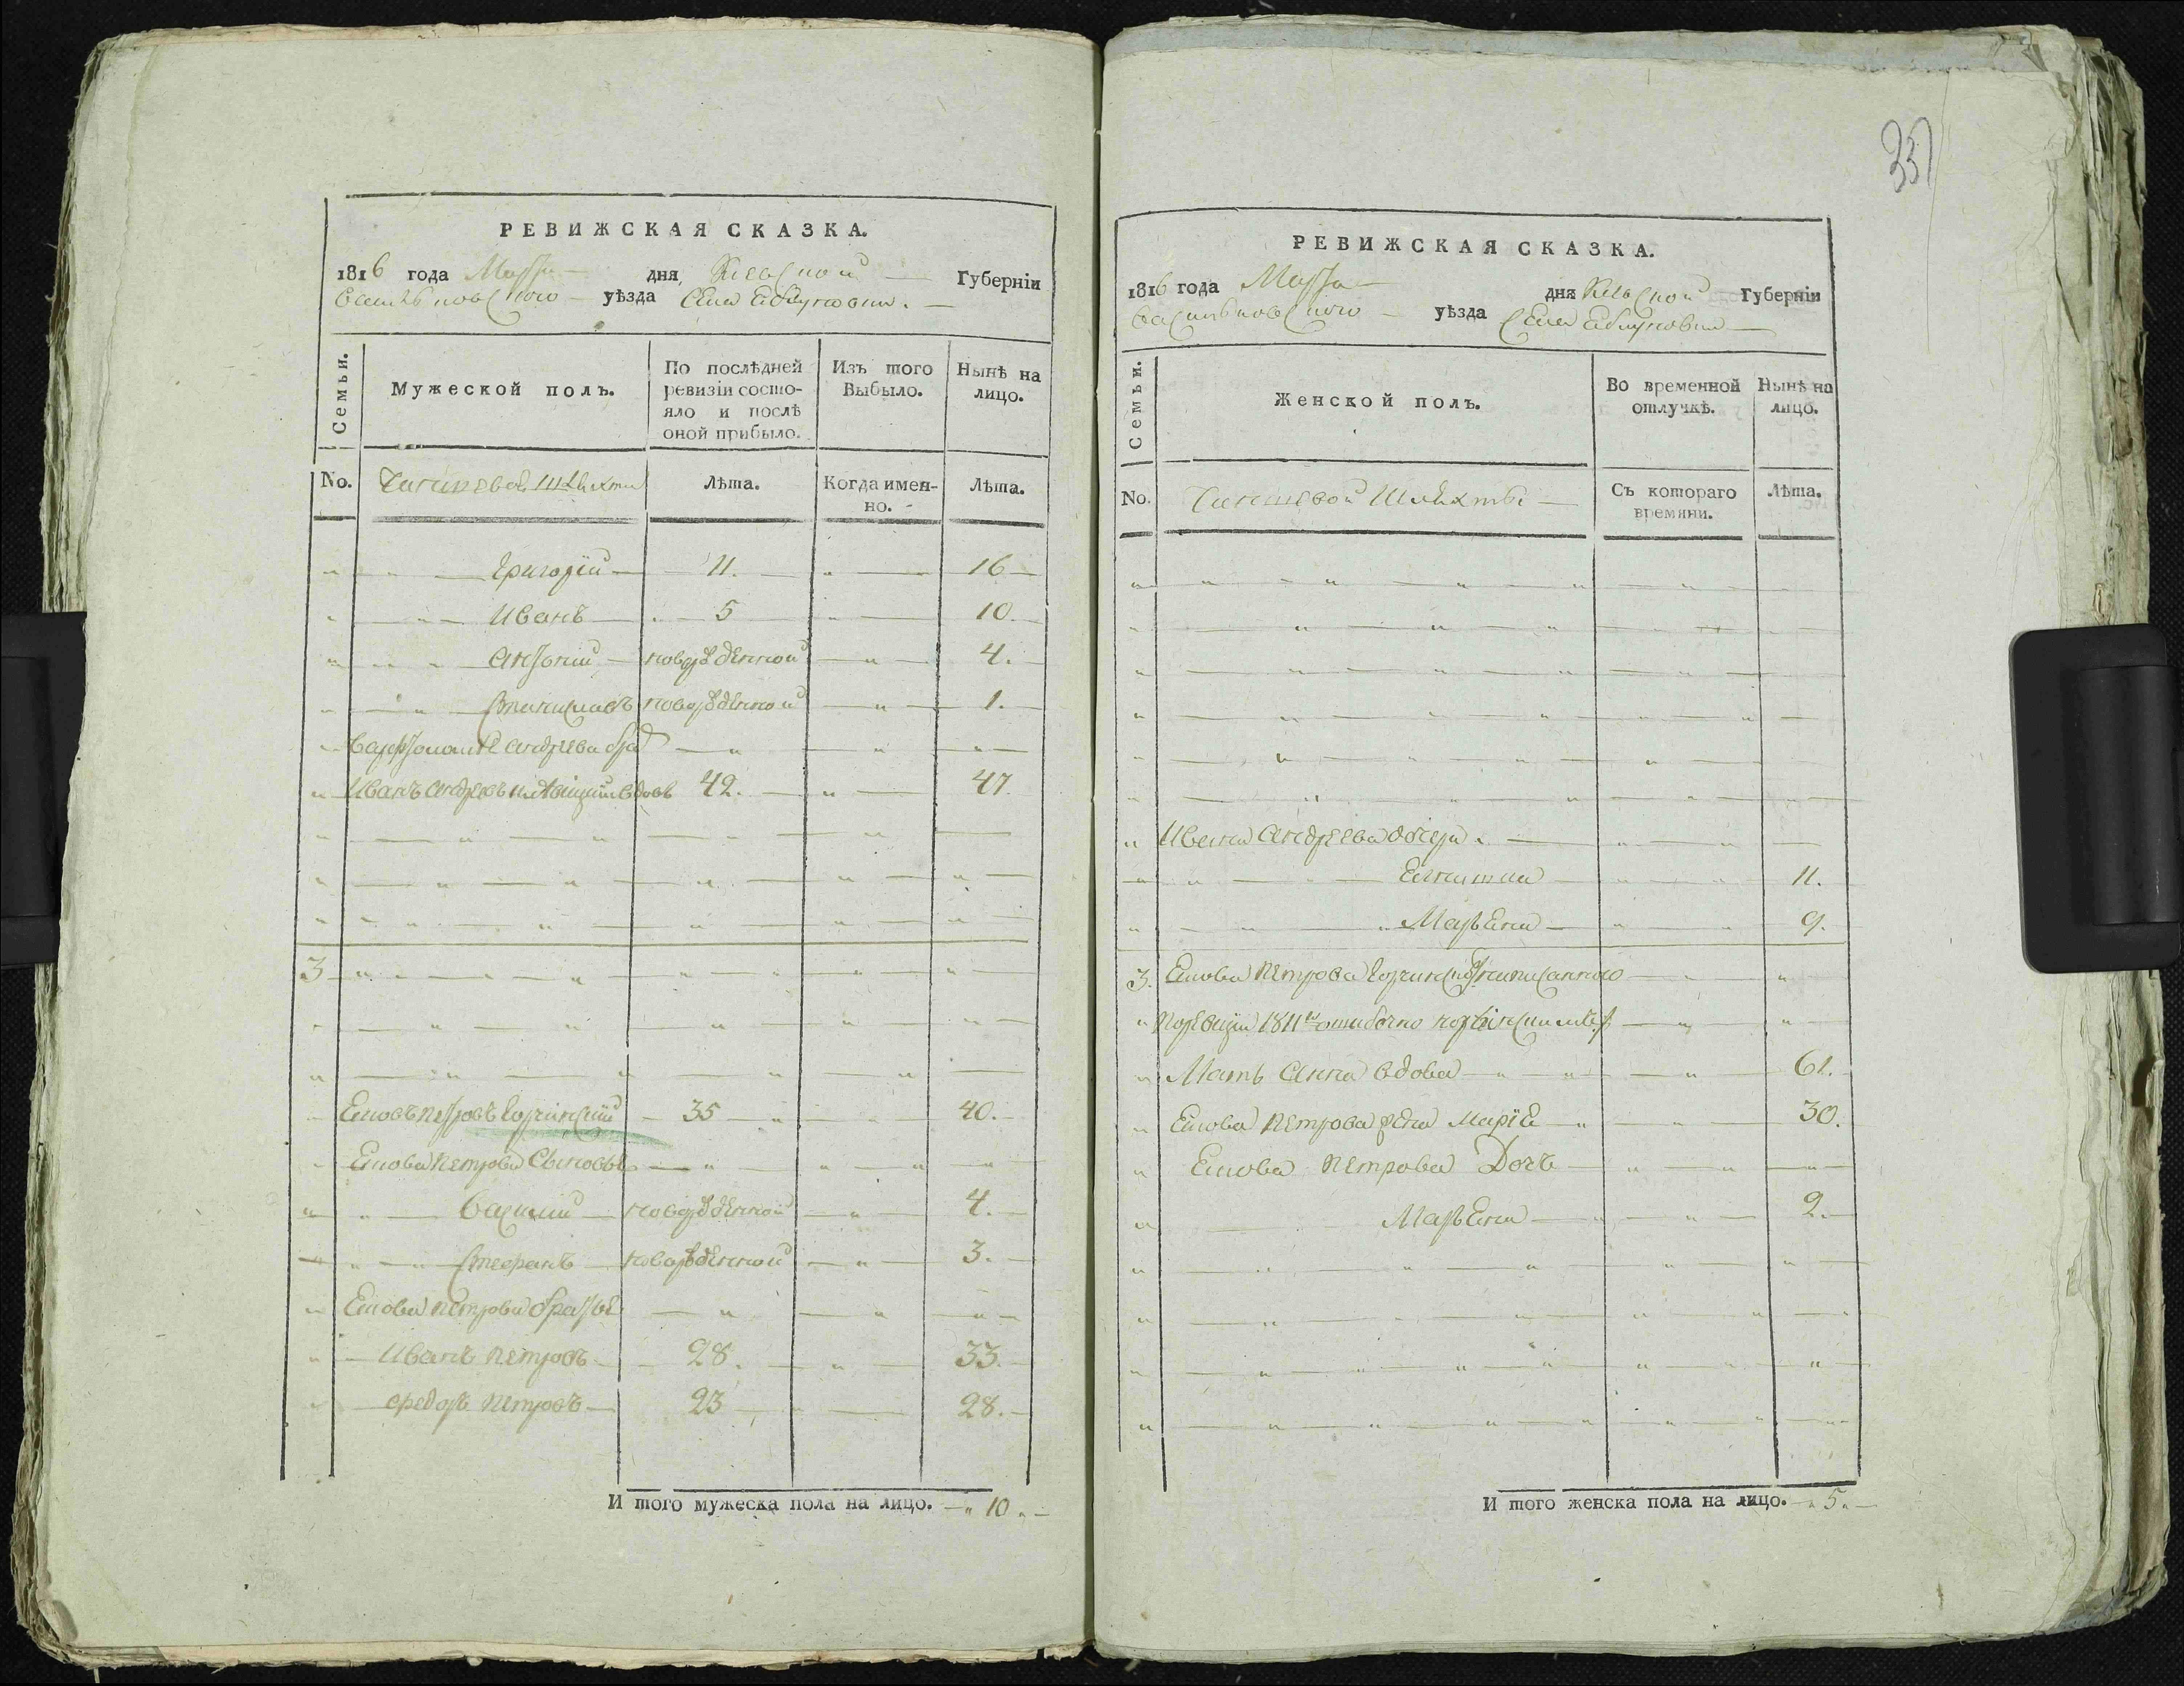 РЕВИЖСКАЯ СКАЗКА.
1816 года Марта дня Киевской Губерніи
Васильковского уѣзда Села Яблуновки.
Семьи.
Мужеской полъ.
По послѣдней ревизіи состояло и послѣ оной прибыло.
Изъ того Выбыло.
Нынѣ на лицо.
No.
Чиншевой шляхты
Лѣта.
Когда именно.
Лѣта.
Григорій 11. 16
Иванъ 5 10.
Антоній новорожденной 4.
Станиславъ новорожденной 1.
Варфоломея Андреева брат
Иванъ Андреевъ вдовъ 42. 47.
3
Яковъ Петровъ 35 40.
Якова Петрова Сыновья
Василий новорожденной 4.
Стефанъ новорожденной 3.
Якова Петрова братья
Иванъ Петровъ 28. 33.
Федоръ Петровъ 23 28.
И того мужеска пола на лицо. 10.
337
РЕВИЖСКАЯ СКАЗКА.
1816 года Марта дня Киевской Губерніи
Васильковского уѣзда Села Яблуновки
Семьи.
Женской полъ.
Во временной отлучкѣ.
Нынѣ на лицо.
No.
Чиншевой Шляхты
Съ котораго времяни.
Лѣта.
Ивана Андреева дочери
11.
Марьяна 9.
3. Якова Петрова записанного
По ревизіи 1811 ошибочно
Мать Анна вдова 61.
Якова Петрова жена Марія 30.
Якова Петрова Дочь
Марьяна 2.
И того женска пола на лицо. 5.